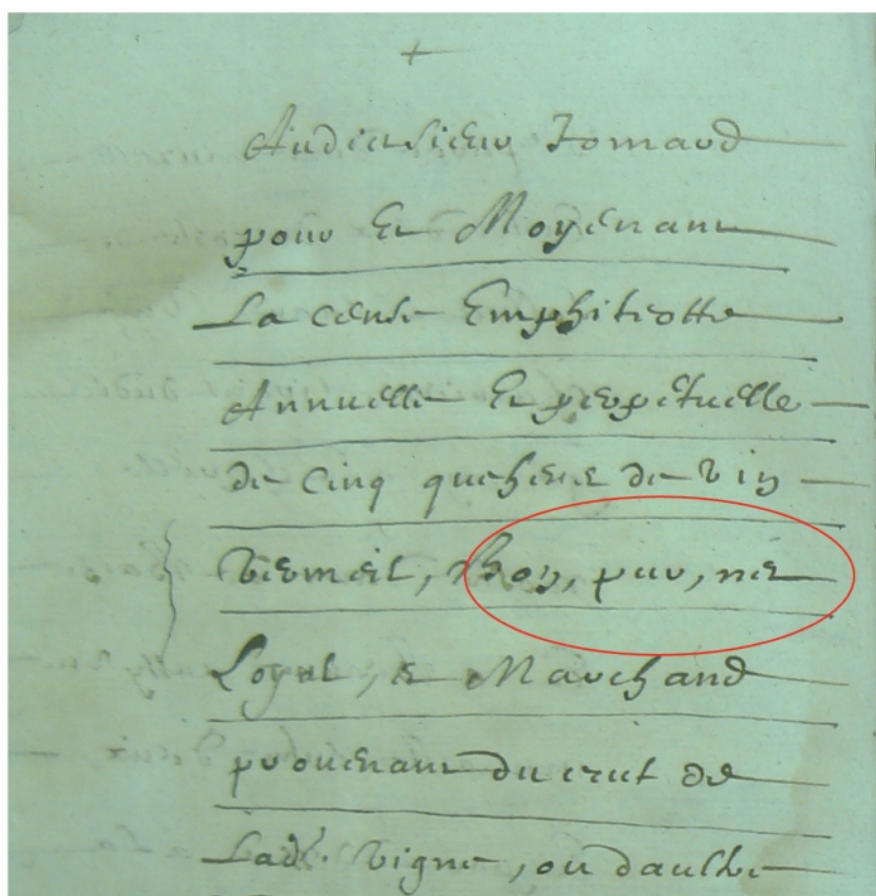 +
Audict sieur Tomard
pour Et Moyenant
La cense Emphiteotte
Annuelle Et perpetuelle
de cinq quehene de vin
vermeil, Bon, pur, net
Loyal, et Marchand
provenant du crut de
Ladte. vigne, ou daultre